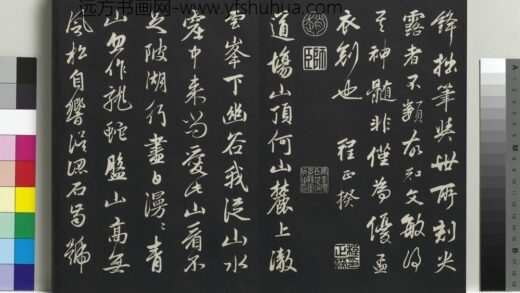 远方书画网 www.yfshuhua.com
鋒拙筆與世所刻尖
露者不類於知文敏得
其神髓非僅為優孟
衣冠也 程正揆
道場山頂何山麓上徹
雲峯下幽谷我從山水
窟中來尚愛此山看不
足陂湖行盡白漫漫青
山忽作龍蛇盤山高無
風松自響誤認石齒號